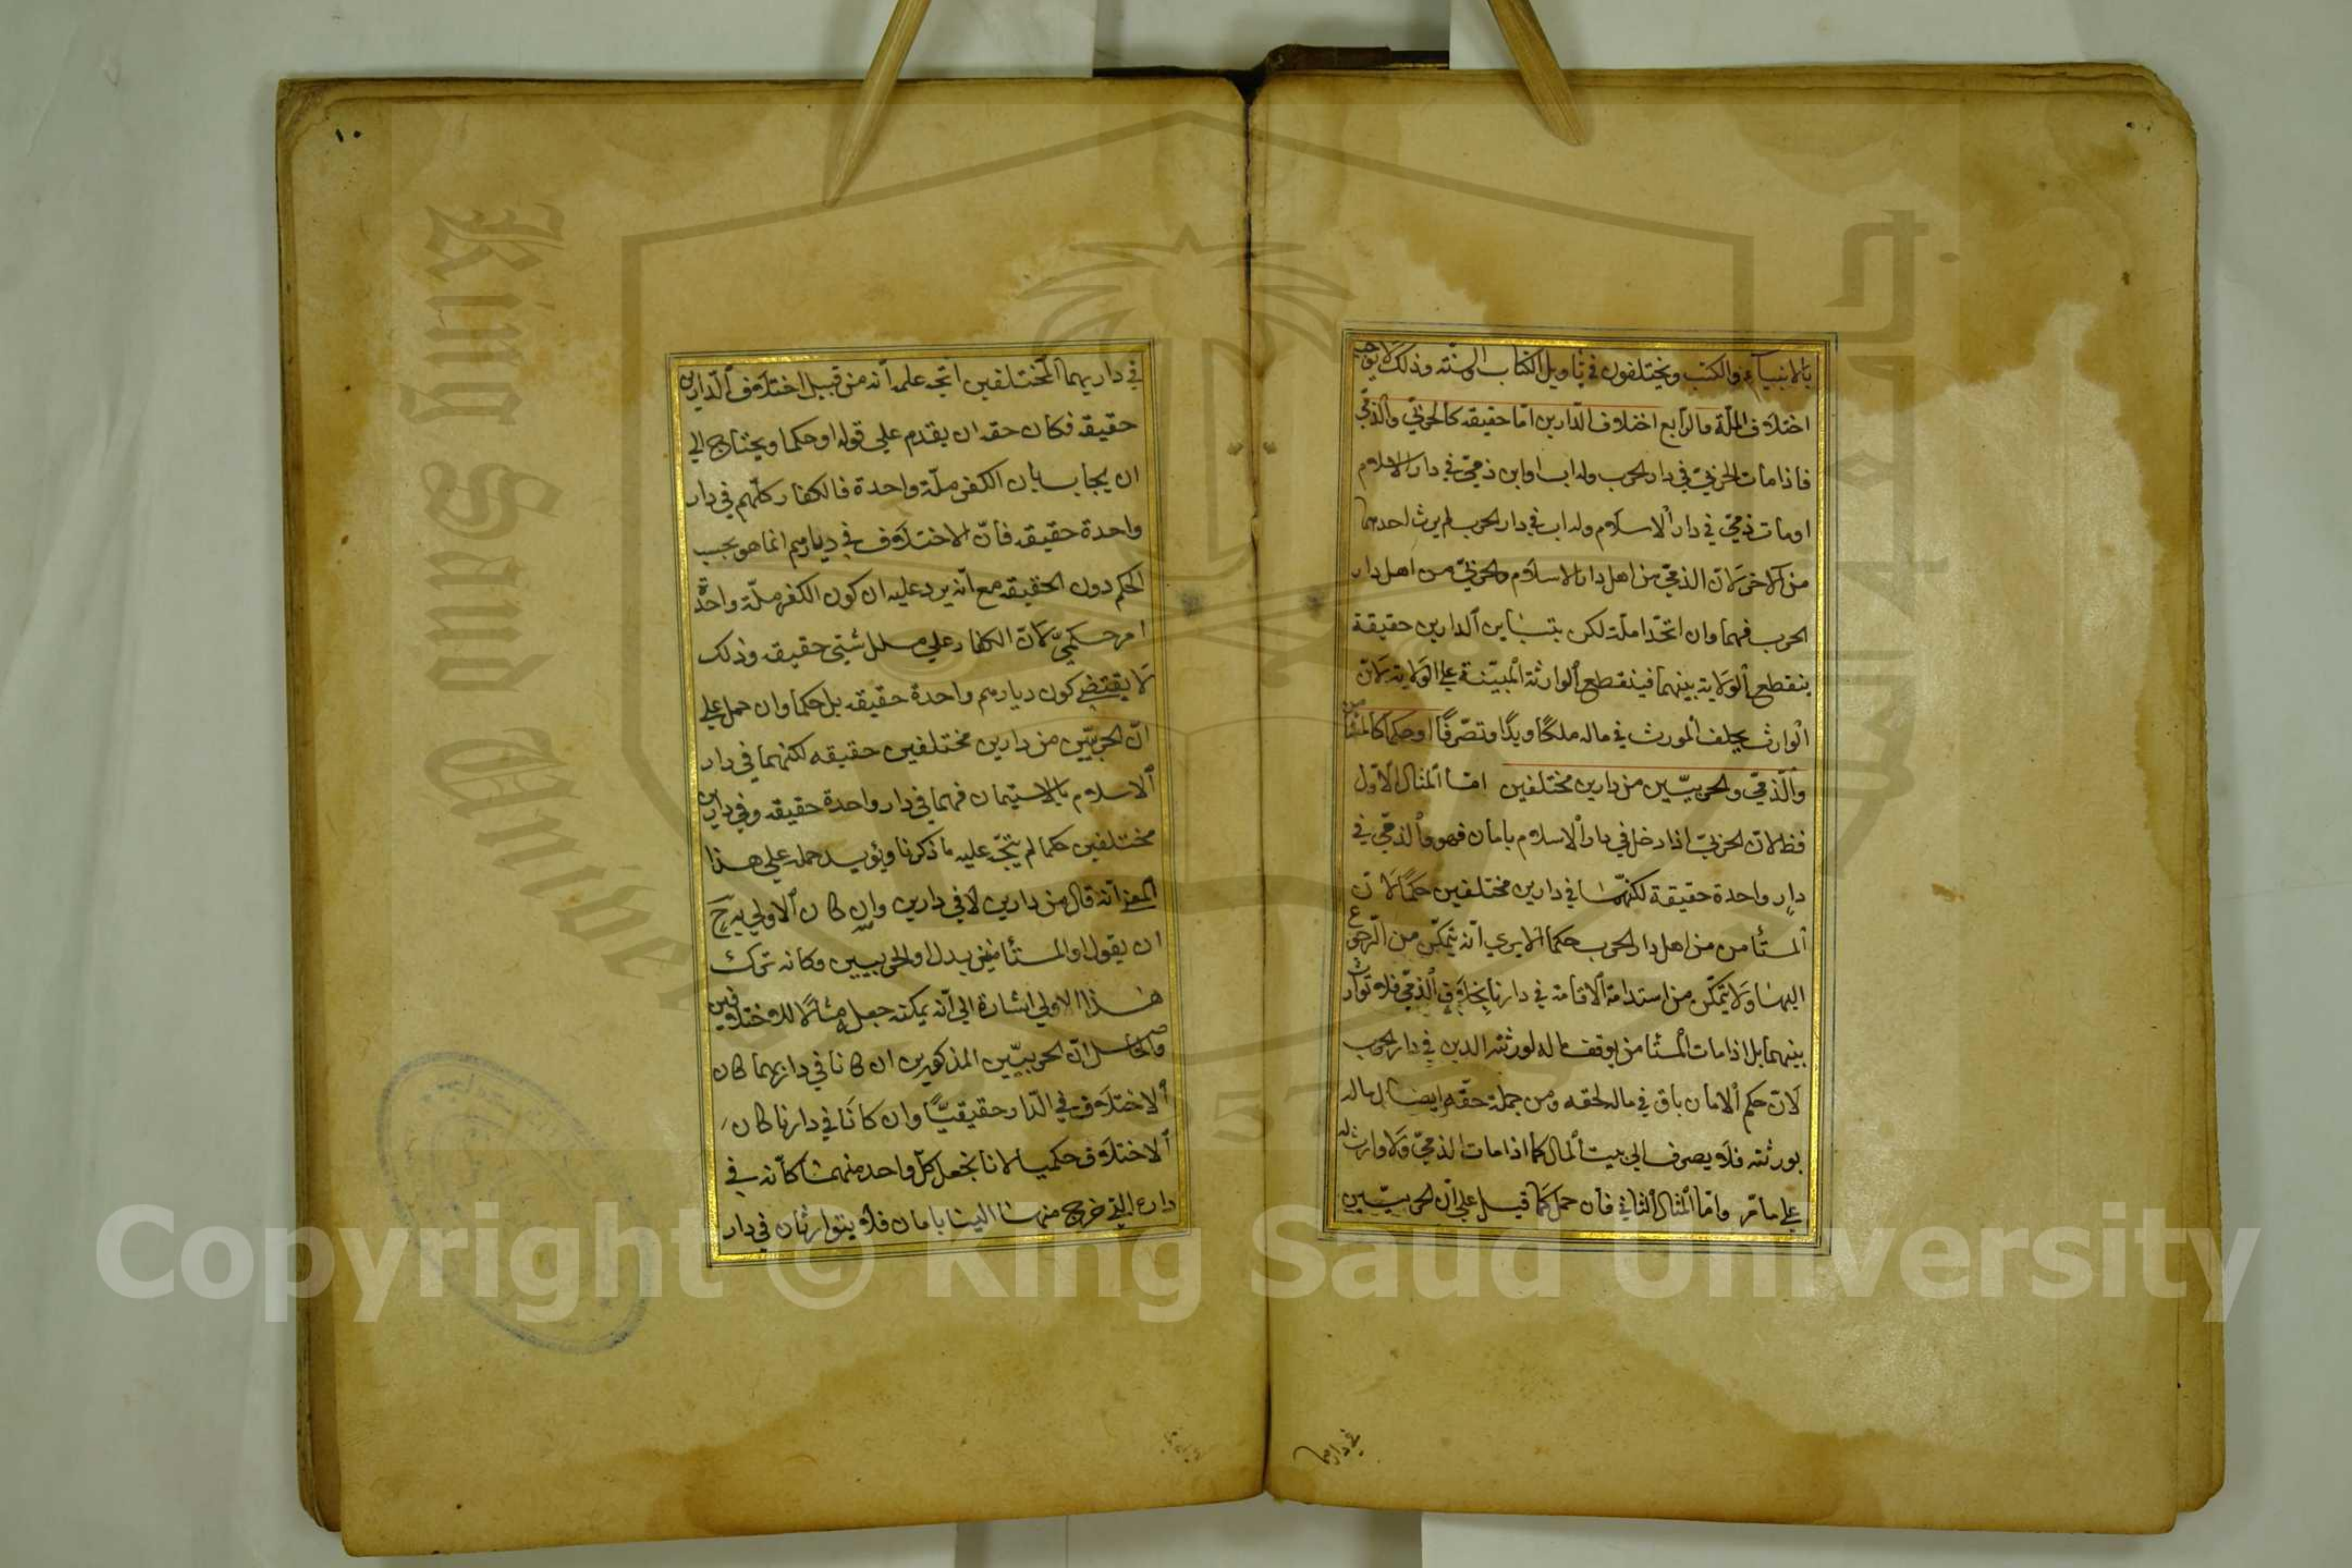 بالانبياء والكتب ويختلفون في تأويل الكتاب والسنة وذلك لا يوجب
اختلاف الملة والرابع اختلاف الدارين اما حقيقة كالحربي والذمي
فاذا مات الحربي في دار الحرب وله اب او ابن ذمي في دار الاسلام
او مات ذمي في دار الاسلام وله اب في دار الحرب لم يرث احدهما
من الآخر لان الذمي من اهل دار الاسلام والحربي من اهل دار
الحرب فهما وان اتحدا ملة لكن بتباين الدارين حقيقة
ينقطع الولاية بينهما فينقطع الوارثة المبينة على الولاية لان
الوارث يخلف المورث في ماله ملكا ويدا وتصرفا او حكما كالمستأمن
والذمي والحربيين من دارين مختلفين اما المثال الاول
فظ لان الحربي اذا دخل في دار الاسلام بامان فهو والذمي في
دار واحدة حقيقة لكنهما في دارين مختلفين حكما لان
المستأمن من اهل دار الحرب حكما الا يرى انه يتمكن من الرجوع
اليها ولا يتمكن من استدامة الاقامة في دارنا بخلاف الذمي فلا توارث
بينهما بل اذا مات المستأمن يوقف ماله لورثته الذين في دار الحرب
لان حكم الامان باق في ماله لحقه ومن جملة حقه ايصال ماله
بورثته فلا يصرف الى بيت المال كما اذا مات الذمي ولا وارث له
على ما مر واما المثال الثاني فان حمل كما قيل على ان الحربيين
في دارهما
١٠
في داريهما المختلفين اتجه عليه انه من قبيل اختلاف الدارين
حقيقة فكان حقه ان يقدم على قوله او حكما ويحتاج الى
ان يجاب بان الكفر ملة واحدة فالكفار كلهم في دار
واحدة حقيقة فان الاختلاف في ديارهم انما هو بحسب
الحكم دون الحقيقة مع انه يرد عليه ان كون الكفر ملة واحدة
امر حكمي لان الكفار على ملل شتى حقيقة وذلك
لا يقتضي كون ديارهم واحدة حقيقة بل حكما وان حمل على
ان الحربيين من دارين مختلفين حقيقة لكنهما في دار
الاسلام بالاستيمان فهما في دار واحدة حقيقة وفي دارين
مختلفين حكما لم يتجه عليه ما ذكرنا ويؤيد حمله على هذا
المعنى انه قال من دارين لا في دارين وان كان الاولى بـه ح
ان يقول او المستأمنين بدل والحربيين وكانه ترك
هذا الاولى اشارة الى انه يمكنه جعله مثالا للاختلافين
والحاصل ان الحربيين المذكورين ان كانا في داريهما كان
الاختلاف في الدار حقيقيا وان كانا في دارنا كان
الاختلاف حكميا لانا نجعل كل واحد منهما كأنه في
داره التي خرج منها الينا بامان فلا يتوارثان في دار
King Saud University
Copyright © King Saud University
1957